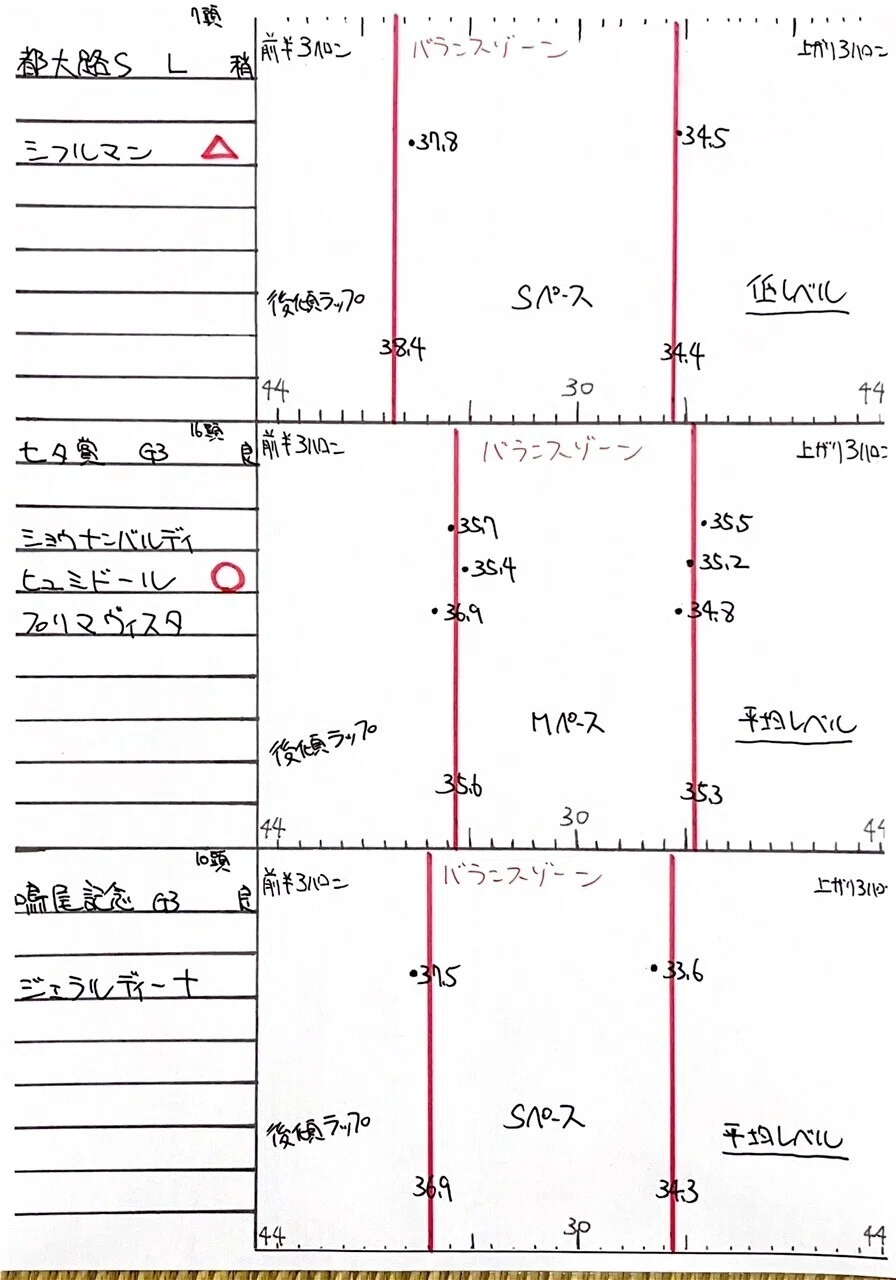 7頭
都大路S L 稍
前半3ハロン バランスゾーン 上がり3ハロン
シフルマン △ ・37.8 ・34.5
後傾ラップ Sペース 低レベル
38.4 34.4
44 30 44
16頭
七夕賞 G3 良
前半3ハロン バランスゾーン 上がり3ハロン
ショウナンバルディ ・35.7 ・35.5
ヒュミドール ○ ・35.4 ・35.2
プリマヴィスタ ・36.9 ・34.8
後傾ラップ Mペース 平均レベル
35.6 35.3
44 30 44
10頭
鳴尾記念 G3 良
前半3ハロン バランスゾーン 上がり3ハロン
ジェラルディーナ ・37.5 ・33.6
後傾ラップ Sペース 平均レベル
36.9 34.3
44 30 44